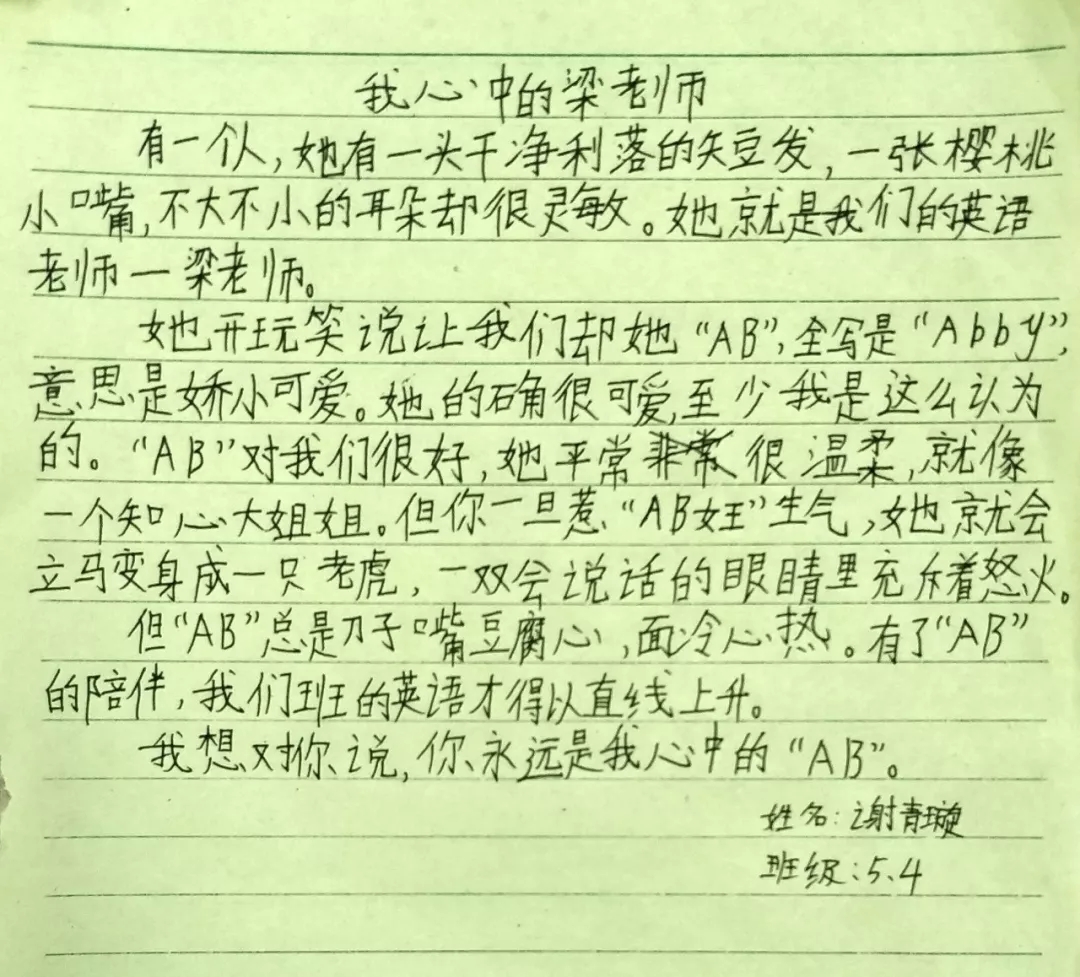 我心中的梁老师
有一个人，她有一头干净利落的短发，一张樱桃
小嘴，不大不小的耳朵却很灵敏。她就是我们的英语
老师一梁老师。
她开玩笑说让我们却她“AB”，全写是“Abby”，
意思是娇小可爱。她的确很可爱，至少我是这么认为
的。“AB”对我们很好，她平常很温柔，就像
一个知心大姐姐。但你一旦惹“AB女王”生气，她就会
立马变身成一只老虎，一双会说话的眼睛里充斥着怒火。
但“AB”总是刀子嘴豆腐心，面冷心热。有了“AB”
的陪伴，我们班的英语才得以直线上升。
我想对你说，你永远是我心中的“AB”。
姓名：谢青璇
班级：5.4